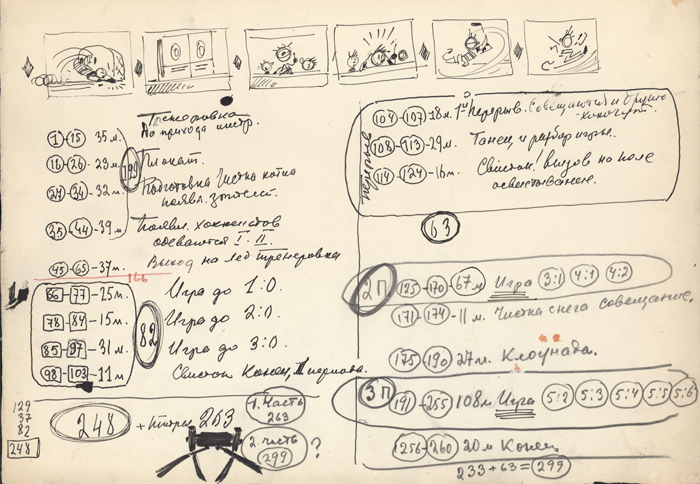 Тренировка
1-15 35м. До прихода инстр.
16-26-23м Плакат.
199
27-34-32м. Подготовка Чистка катка
появл. зрителей.
35-44-39м Появл. хоккеистов
одеваются I. II.
45-65-37м. Выход на лед тренировка
166
66-77-25м. Игра до 1:0.
78-84-15м. Игра до 2:0.
82
85-97-31м. Игра до 3:0.
98-103-11м Свисток Конец I периода.
129
37
82
248
248 + титры 263
1. Часть
263
2. часть
299
?
104-107 18м. 1й перерыв. Совещаются и
108-113-29м. Танец и разбор игры.
114-124-16м. Свисток! Выход на поле
зрители
63
2П 125-170-67м Игра 3:1 4:1 4:2
171-174-11м. Чистка снега совещание,
175-190 27м. Клоунада.
3П 191-255 108м. Игра 5:2 5:3 5:4 5:5 5:6
256-260 20м Конец
233+63=299